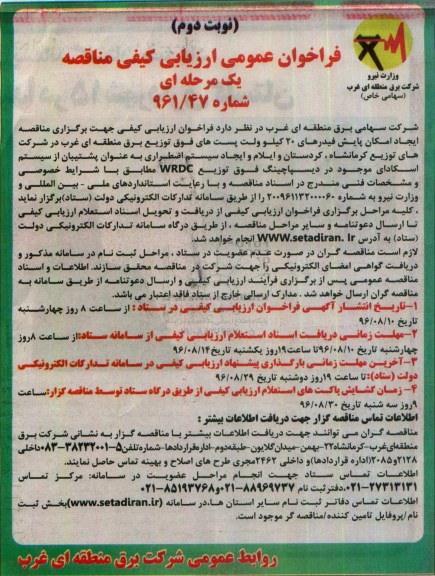 (نوبت دوم)
فراخوان عمومی ارزیابی کیفی مناقصه
یک مرحله ای
شماره ۹۶۱/۴۷
وزارت نیرو
شرکت برق منطقه ای غرب
(سهامی خاص)
شرکت سهامی برق منطقه ای غرب در نظر دارد فراخوان ارزیابی کیفی جهت برگزاری مناقصه
ایجاد امکان پایش فیدرهای ۲۰ کیلو ولت پست های فوق توزیع برق منطقه ای غرب در شرکت
های توزیع کرمانشاه ، کردستان و ایلام و ایجاد سیستم اضطراری به عنوان پشتیبان از سیستم
اسکادای موجود در دیسپاچینگ فوق توزیع WRDC مطابق با شرایط خصوصی
و مشخصات فنی مندرج در اسناد مناقصه و با رعایت استانداردهای ملی - بین المللی و
وزارت نیرو به شماره ۲۰۰۹۶۱۱۳۲۰۰۰۰۶۰ را از طریق سامانه تدارکات الکترونیکی دولت (ستاد)برگزار نماید
. کلیه مراحل برگزاری فراخوان ارزیابی کیفی از دریافت و تحویل اسناد استعلام ارزیابی کیفی
تا ارسال دعوتنامه و سایر مراحل مناقصه ، از طریق درگاه سامانه تدارکات الکترونیکی دولت
(ستاد) به آدرس WWW.setadiran.Ir انجام خواهد شد.
لازم است مناقصه گران در صورت عدم عضویت در ستاد ، مراحل ثبت نام در سامانه مذکور و
دریافت گواهی امضای الکترونیکی را جهت شرکت در مناقصه محقق سازند. اطلاعات و اسناد
مناقصه عمومی پس از برگزاری فرآیند ارزیابی کیفی و ارسال دعوتنامه از طریق سامانه به
مناقصه گران ارسال خواهد شد . مدارک ارسالی خارج از ستاد فاقد اعتبار می باشد.
۱-تاریخ انتشار آگهی فراخوان ارزیابی کیفی در ستاد : از ساعت ۸ روز چهارشنبه
تاریخ ۹۶/۰۸/۱۰
۲-مهلت زمانی دریافت اسناد استعلام ارزیابی کیفی از سامانه ستاد:از ساعت ۸روز
چهارشنبه تاریخ ۹۶/۰۸/۱۰تا ساعت۱۹روز یکشنبه تاریخ۹۶/۰۸/۱۴
۳-آخرین مهلت زمانی بارگذاری پیشنهاد ارزیابی کیفی در سامانه تدارکات الکترونیکی
دولت (ستاد):تا ساعت ۱۹روز دوشنبه تاریخ ۹۶/۰۸/۲۹
۴- زمان گشایش پاکت های استعلام ارزیابی کیفی از طریق درگاه ستاد توسط مناقصه گزار:ساعت
۹روز سه شنبه تاریخ ۹۶/۰۸/۳۰
اطلاعات تماس مناقصه گزار جهت دریافت اطلاعات بیشتر :
مناقصه گران می توانند جهت دریافت اطلاعات بیشتر با مناقصه گزار به نشانی شرکت برق
منطقه‌ای‌غرب-کرمانشاه-۲۲بهمن-میدان‌گلایون-طبقه‌دوم-اداره‌قراردادها-شماره‌تلفن۵-۳۸۲۳۲۰۰۱-۰۸۳داخلی
۲۱۲۸و۲۰۸۵(اداره قراردادها)و داخلی ۲۴۶۲مجری طرح های اصلاح و بهینه تماس حاصل نمایند.
اطلاعات تماس ستاد جهت انجام مراحل عضویت در سامانه: مرکز تماس
۰۲۱-۲۷۳۱۳۱۳۱،دفترثبت نام ۸۸۹۶۹۷۳۷-۰۲۱و۸۵۱۹۳۷۶۸-۰۲۱
اطلاعات تماس دفاتر ثبت نام سایر استان ها،در سامانه (www.setadiran.ir)بخش ثبت
نام/پروفایل تامین کننده/مناقصه گر موجود است.
روابط عمومی شرکت برق منطقه ای غرب